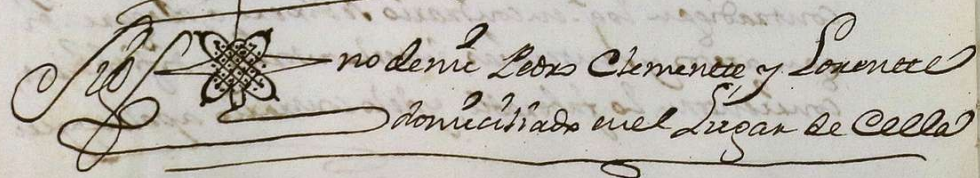 Sig no de mi Pedro Clemente y Lorente
domiciliado en el Lugar de Cella